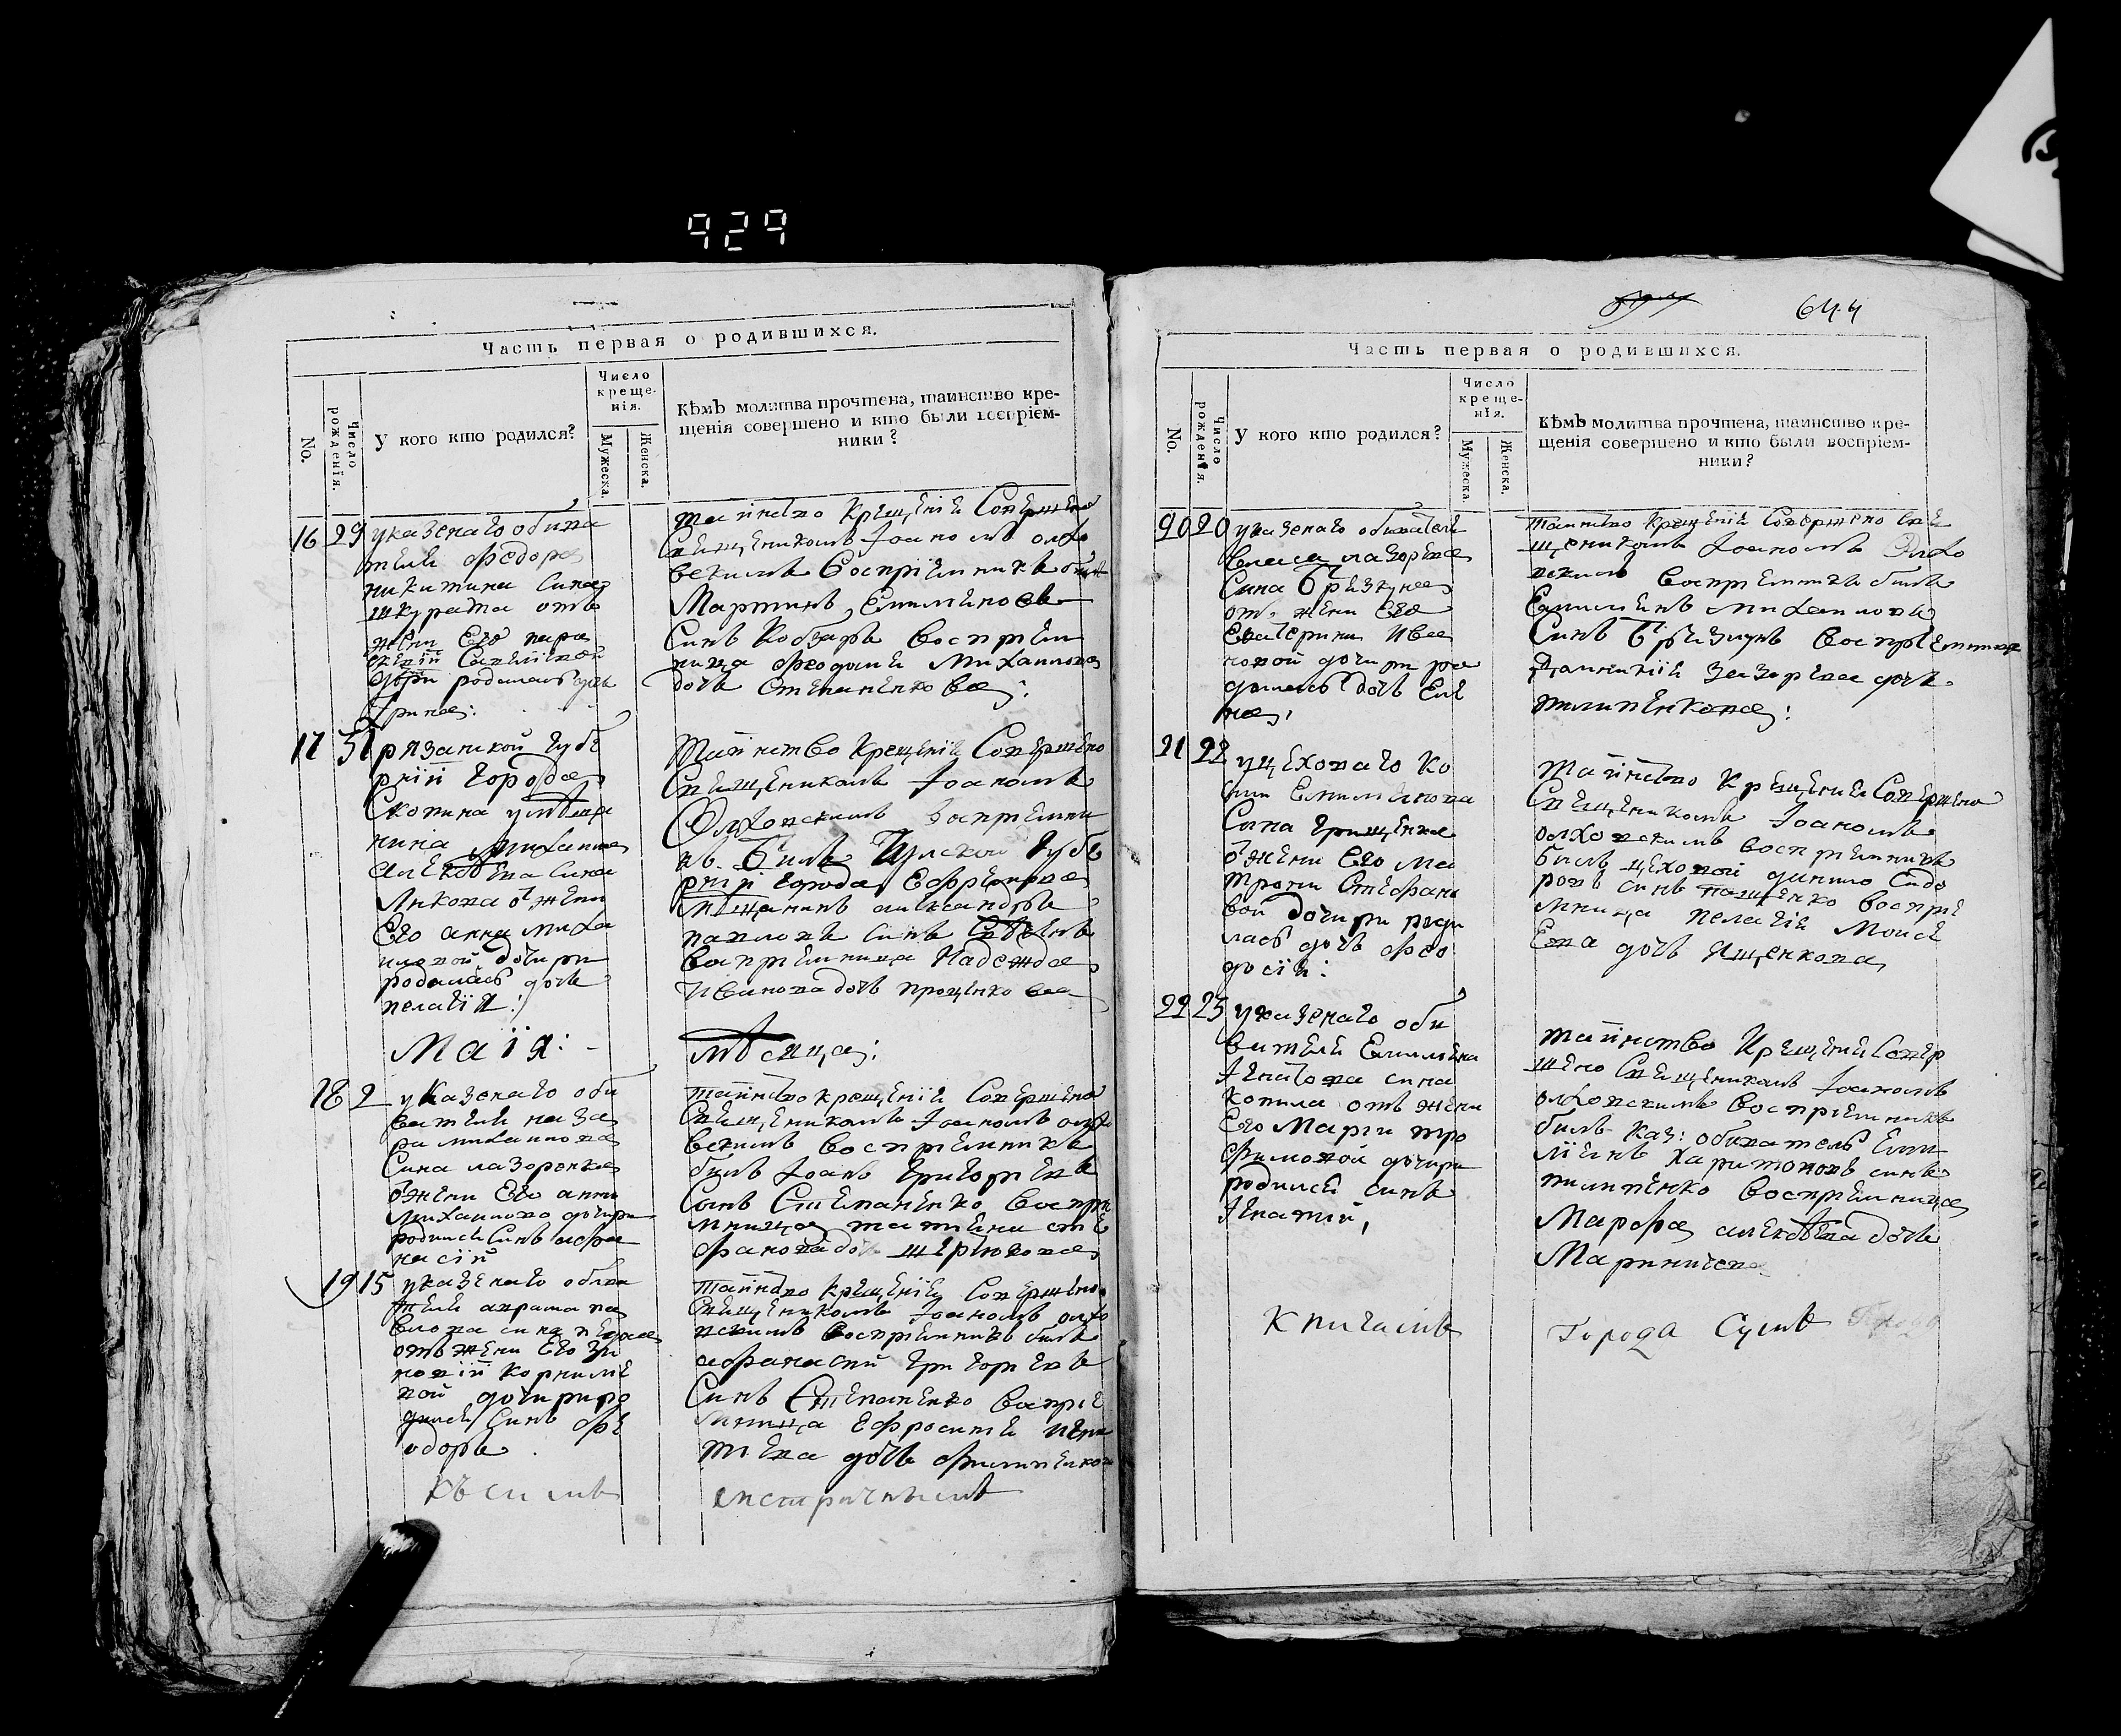 929
Часть первая о родившихся.
No.
Число рожденія.
У кого кто родился?
Число креще-
нія.
Мужеска.
Женска.
Кѣмъ молитва прочтена, таинство кре-
щенія совершено и кто были воспріем-
ники?
16 29 у казенаго обива
теля Федора
никитина сина
шкурата отъ
жени Его пара
родилась
таинство Крещенія Совершено
Священикомъ Іоаномъ олхо
вскимъ Воспріемникъ
Мартинъ Емилянов
Синъ Кобзарь Воспріем
ница Феодосия Михаилова
дочь Степаненкова:
17 31 рязанской губе
рніи города
Скопина умѣща
нина
алексѣева сина
отжени
Его анна миха
иловой дочири
родилась дочь
пелагія:
таинство Крещенія Совершено
Священикомъ Іоаномъ
Олховскимъ Воспріемни
къ Билъ Тулской губе
рніи города Ефремова
мѣщанинъ александръ
павловъ синъ
Воспріемница Надежда
Иванова дочь проценкова
Маія:
мѣсяца:
18 2 у казенаго оби
вателя наза
ра михаилова
Сина лазоренка
отжени Его анни
михаилово дочири
родился Синъ афа
насій
таинство крещенія Совершено
Священикомъ Іоаномъ олхо
вскимъ воспріемникъ
билъ Іоанъ григоріевъ
Синъ Степаненко Воспри
мница татияна сте
фанова дочь
19 15 у казенаго обива
теля аврама па
влова сина
отъ жени Его зи
новіи корниліе
вой дочири ро
дился Синъ фе
одоръ.
Таинство Крещенія Совершено
Священикомъ Іоаномъ олхо
вскимъ воспріемникъ билъ
афанасий григоріевъ
Синъ Степаненко Воспріе
мница Ефросинія
дочь
644
Часть первая о родившихся.
No.
Число рожденія.
У кого кто родился?
Число креще-
нія.
Мужеска.
Женска.
Кѣмъ молитва прочтена, таинство кре-
щенія совершено и кто были воспріем-
ники?
20 20 у казенаго обивателя
власа лазорева
Сина
от жени Его
Екатерини Ива
новой дочири ро
дилась дочь Еле
на,
Таинство Крещенія Совершено свя
щеникомъ Іоаномъ Олхо
вскимъ воспріемникъ билъ
Емилиянъ михаиловъ
Синъ воспріемница
дочь
пилипенкова:
21 22 у цеховаго Ко
Емилиянова
Сина грищенка
отжени Его ма
трони Стефано
вой дочири роди
лась дочь фео
досія:
таинство Крещенія Совершено
Священикомъ Іоаномъ
олховскимъ воспріемникъ
билъ цеховой данило Сидо
ровъ синъ пащенко воспріе
мница пелагія Моисе
Ева дочь Ященкова
22 25 у казенаго оби
вателя Емилияна
Игнатова сина
копила отъ жени
Его Марии тро
фимовой дочири
родился синъ
Игнатий,
таинство Крещения Совер
шено Священикомъ Іоаномъ
олховскимъ Воспріемникъ
билъ каз: обиватель Еми
лиянъ харитоновъ синъ
пилипенко воспріемница
Марфа алексѣева дочь